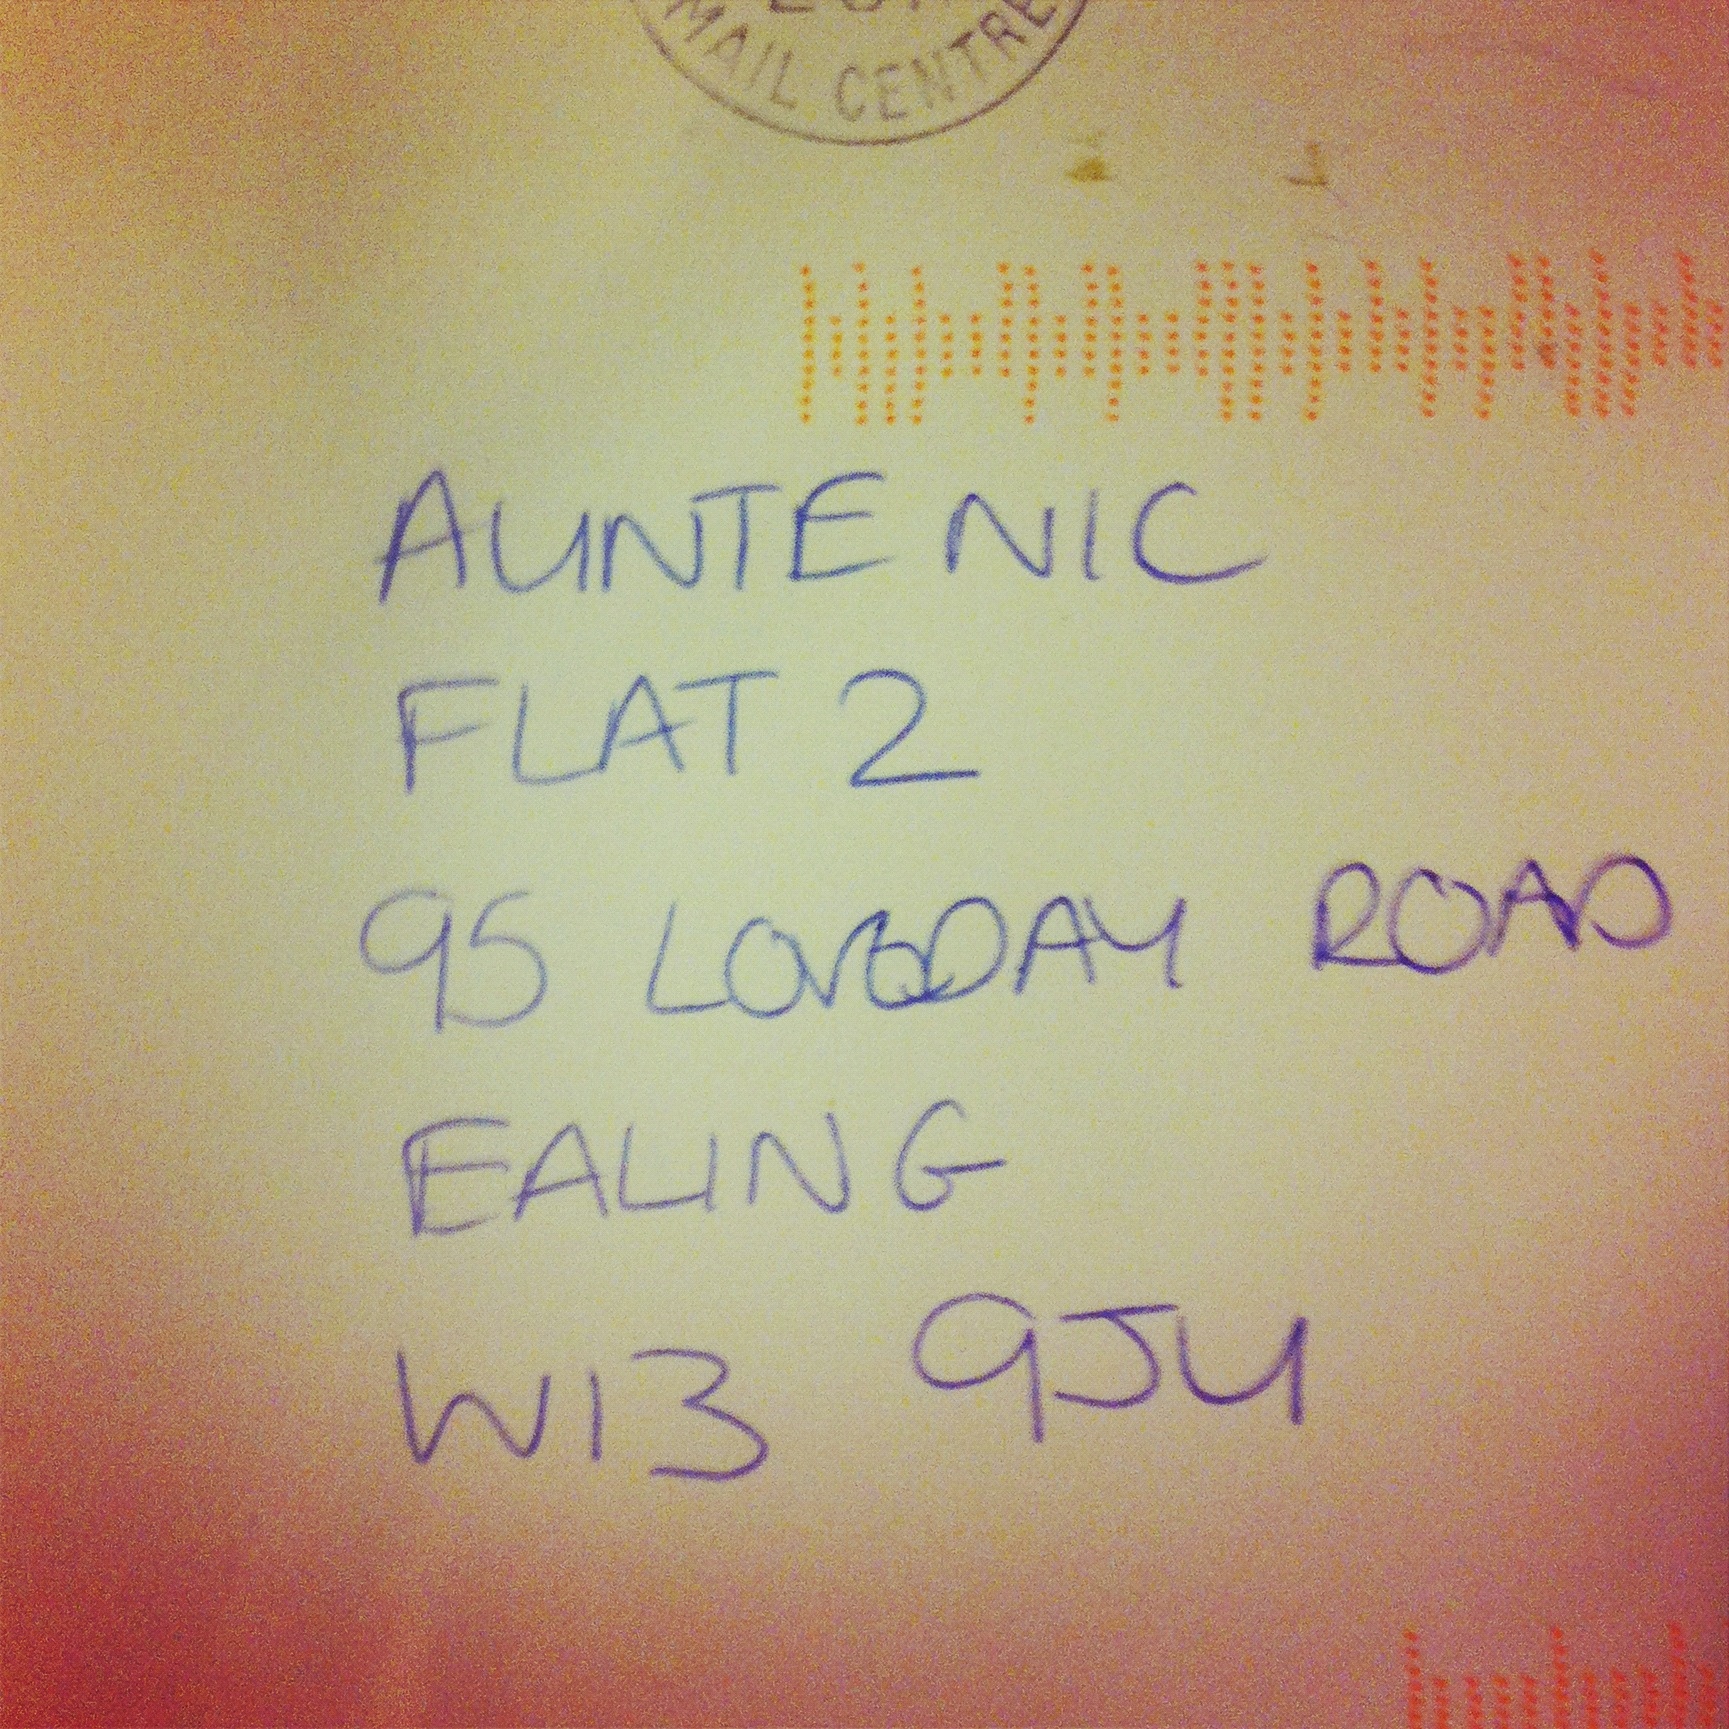 MAIL CENTRE
AUNTE NIC
FLAT 2
95 LOVEDAY ROAD
EALING
W13 9JU